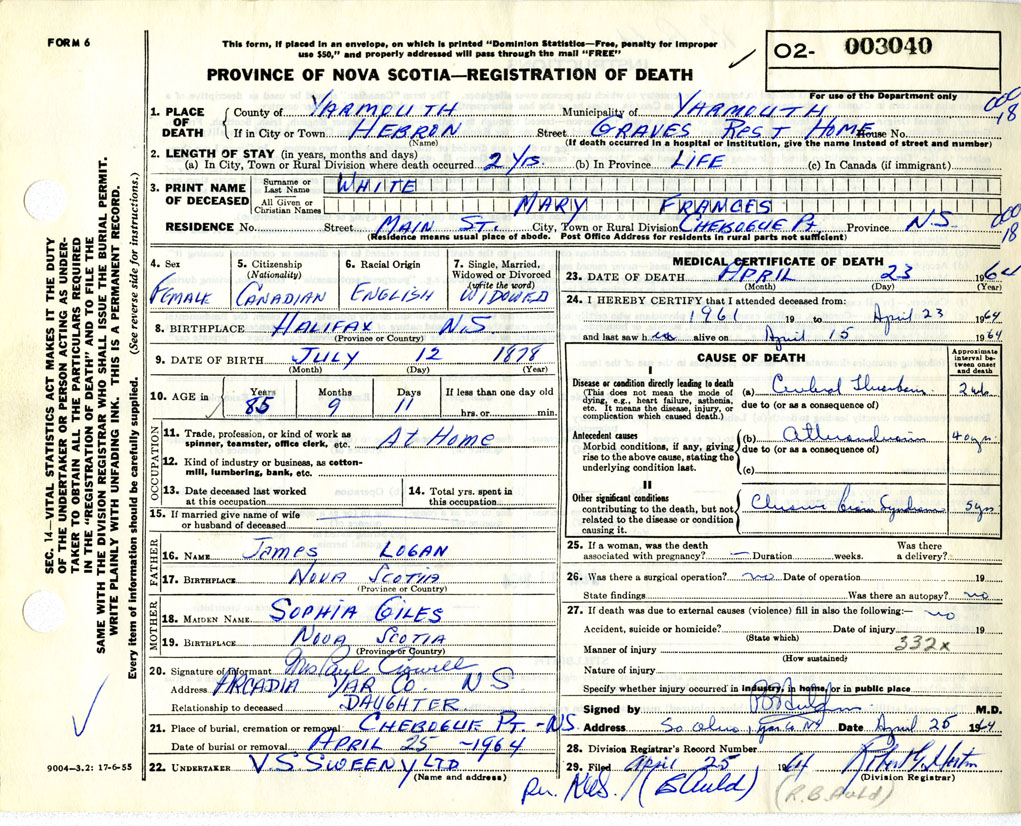 FORM 6
This form, if placed in an envelope, on which is printed "Dominion Statistics—Free, penalty for improper
use $50," and properly addressed will pass through the mail "FREE"
O2- 003040
For use of the Department only
PROVINCE OF NOVA SCOTIA—REGISTRATION OF DEATH
1. PLACE OF DEATH
County of YARMOUTH Municipality of YARMOUTH
If in City or Town HEBRON Street GRAVES REST HOME House No.
(Name) (If death occurred in a hospital or institution, give the name instead of street and number)
000
18
2. LENGTH OF STAY (in years, months and days)
(a) In City, Town or Rural Division where death occurred 2 Yrs. (b) In Province LIFE (c) In Canada (if immigrant)
3. PRINT NAME OF DECEASED
Surname or Last Name WHITE
All Given or Christian Names MARY FRANCES
RESIDENCE No. Street MAIN ST. City, Town or Rural Division CHEBOGUE PT. Province N.S.
(Residence means usual place of abode. Post Office Address for residents in rural parts not sufficient)
000
18
4. Sex FEMALE
5. Citizenship (Nationality) CANADIAN
6. Racial Origin ENGLISH
7. Single, Married, Widowed or Divorced (write the word) WIDOWED
8. BIRTHPLACE HALIFAX N.S.
(Province or Country)
9. DATE OF BIRTH JULY 12 1878
(Month) (Day) (Year)
10. AGE in Years 85 Months 9 Days 11 If less than one day old
hrs. or min.
OCCUPATION
11. Trade, profession, or kind of work as
spinner, teamster, office clerk, etc. AT HOME
12. Kind of industry or business, as cotton-
mill, lumbering, bank, etc.
13. Date deceased last worked
at this occupation
14. Total yrs. spent in
this occupation
15. If married give name of wife
or husband of deceased
FATHER
16. NAME JAMES LOGAN
17. BIRTHPLACE NOVA SCOTIA
(Province or Country)
MOTHER
18. MAIDEN NAME SOPHIA GILES
19. BIRTHPLACE NOVA SCOTIA
(Province or Country)
20. Signature of informant Mrs Crowell
Address ARCADIA YAR CO. N S
Relationship to deceased DAUGHTER
21. Place of burial, cremation or removal CHEBOGUE PT. - N.S.
Date of burial or removal APRIL 25 - 1964
22. UNDERTAKER V.S. SWEENY LTD
(Name and address)
MEDICAL CERTIFICATE OF DEATH
23. DATE OF DEATH APRIL 23 1964
(Month) (Day) (Year)
24. I HEREBY CERTIFY that I attended deceased from:
1961 19 to April 23 1964
and last saw h er alive on April 15 1964
CAUSE OF DEATH
Approximate interval between onset and death
I
Disease or condition directly leading to death
(This does not mean the mode of
dying, e.g., heart failure, asthenia,
etc. It means the disease, injury, or
complication which caused death.)
(a) Cerebral Thrombosis
due to (or as a consequence of)
Antecedent causes
Morbid conditions, if any, giving
rise to the above cause, stating the
underlying condition last.
(b)
due to (or as a consequence of)
(c)
II
Other significant conditions
contributing to the death, but not
related to the disease or condition
causing it.
Brain Syndrome 5 yrs
25. If a woman, was the death
associated with pregnancy? — Duration weeks. Was there
a delivery?
26. Was there a surgical operation? no Date of operation 19
State findings Was there an autopsy? no
27. If death was due to external causes (violence) fill in also the following:— no
Accident, suicide or homicide? Date of injury 19
(State which)
332x
Manner of injury
(How sustained)
Nature of injury
Specify whether injury occurred in industry, in home, or in public place
Signed by M.D.
Address So Ohio, Date April 25 1964
28. Division Registrar's Record Number
29. Filed April 25 1964
(Division Registrar)
(R.B. Auld)
SEC. 14—VITAL STATISTICS ACT MAKES IT THE DUTY
OF THE UNDERTAKER OR PERSON ACTING AS UNDER-
TAKER TO OBTAIN ALL THE PARTICULARS REQUIRED
IN THE "REGISTRATION OF DEATH" AND TO FILE THE
SAME WITH THE DIVISION REGISTRAR WHO SHALL ISSUE THE BURIAL PERMIT.
WRITE PLAINLY WITH UNFADING INK. THIS IS A PERMANENT RECORD.
Every item of information should be carefully supplied. (See reverse side for instructions.)
9004-3.2: 17-6-55